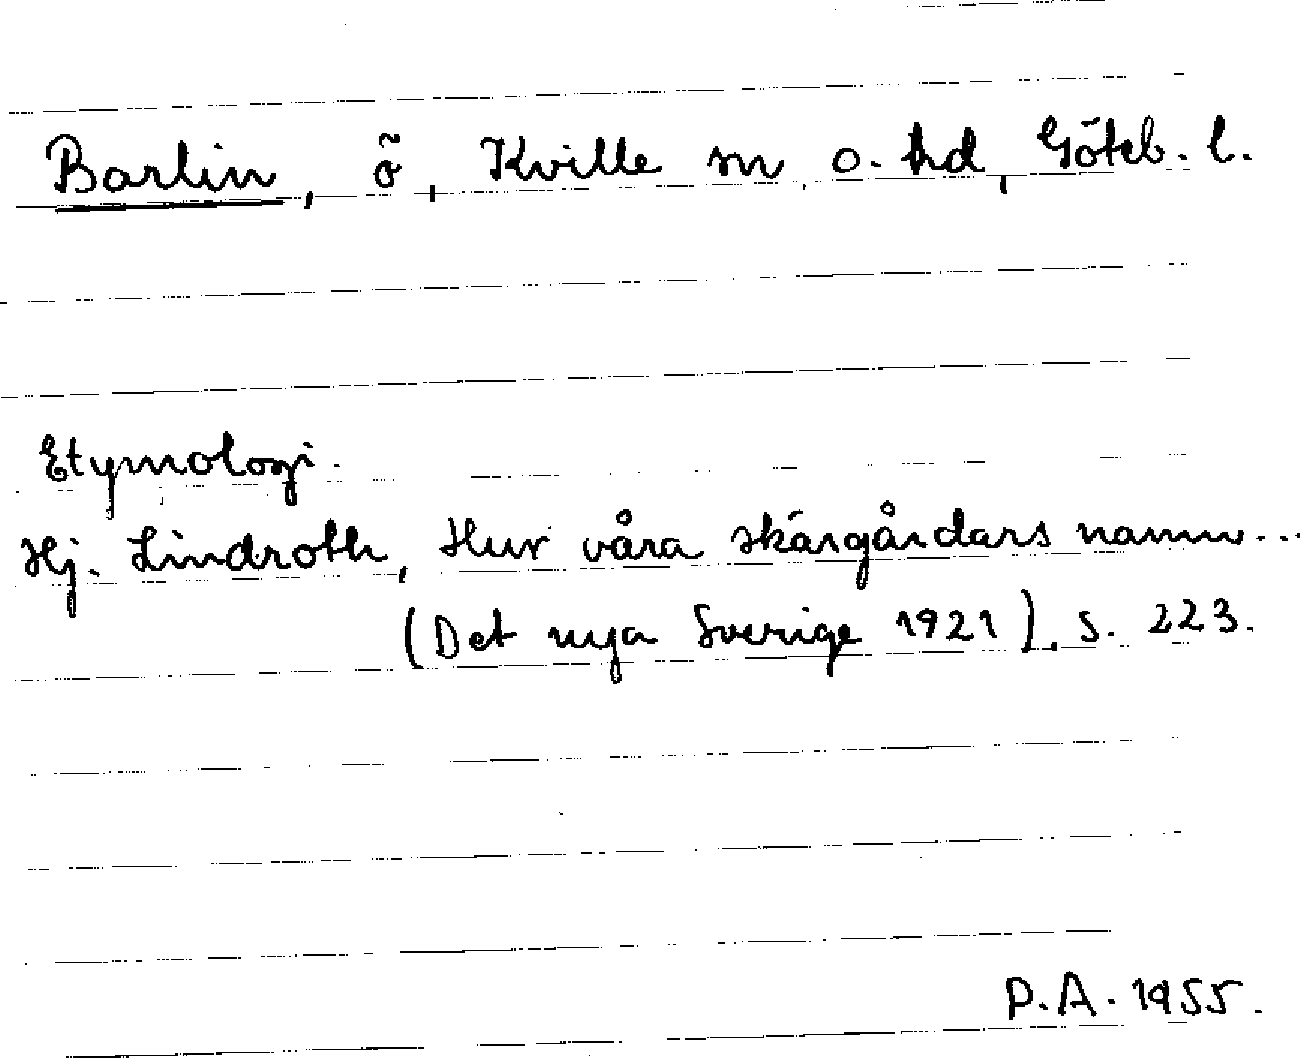 Barlin, ö, Kville sn o. hd, Göteb. l.
Etymologi.
Hj. Lindroth, Hur våra skärgårdars namn...
(Det nya Sverige 1921), s. 223.
P.A. 1955.